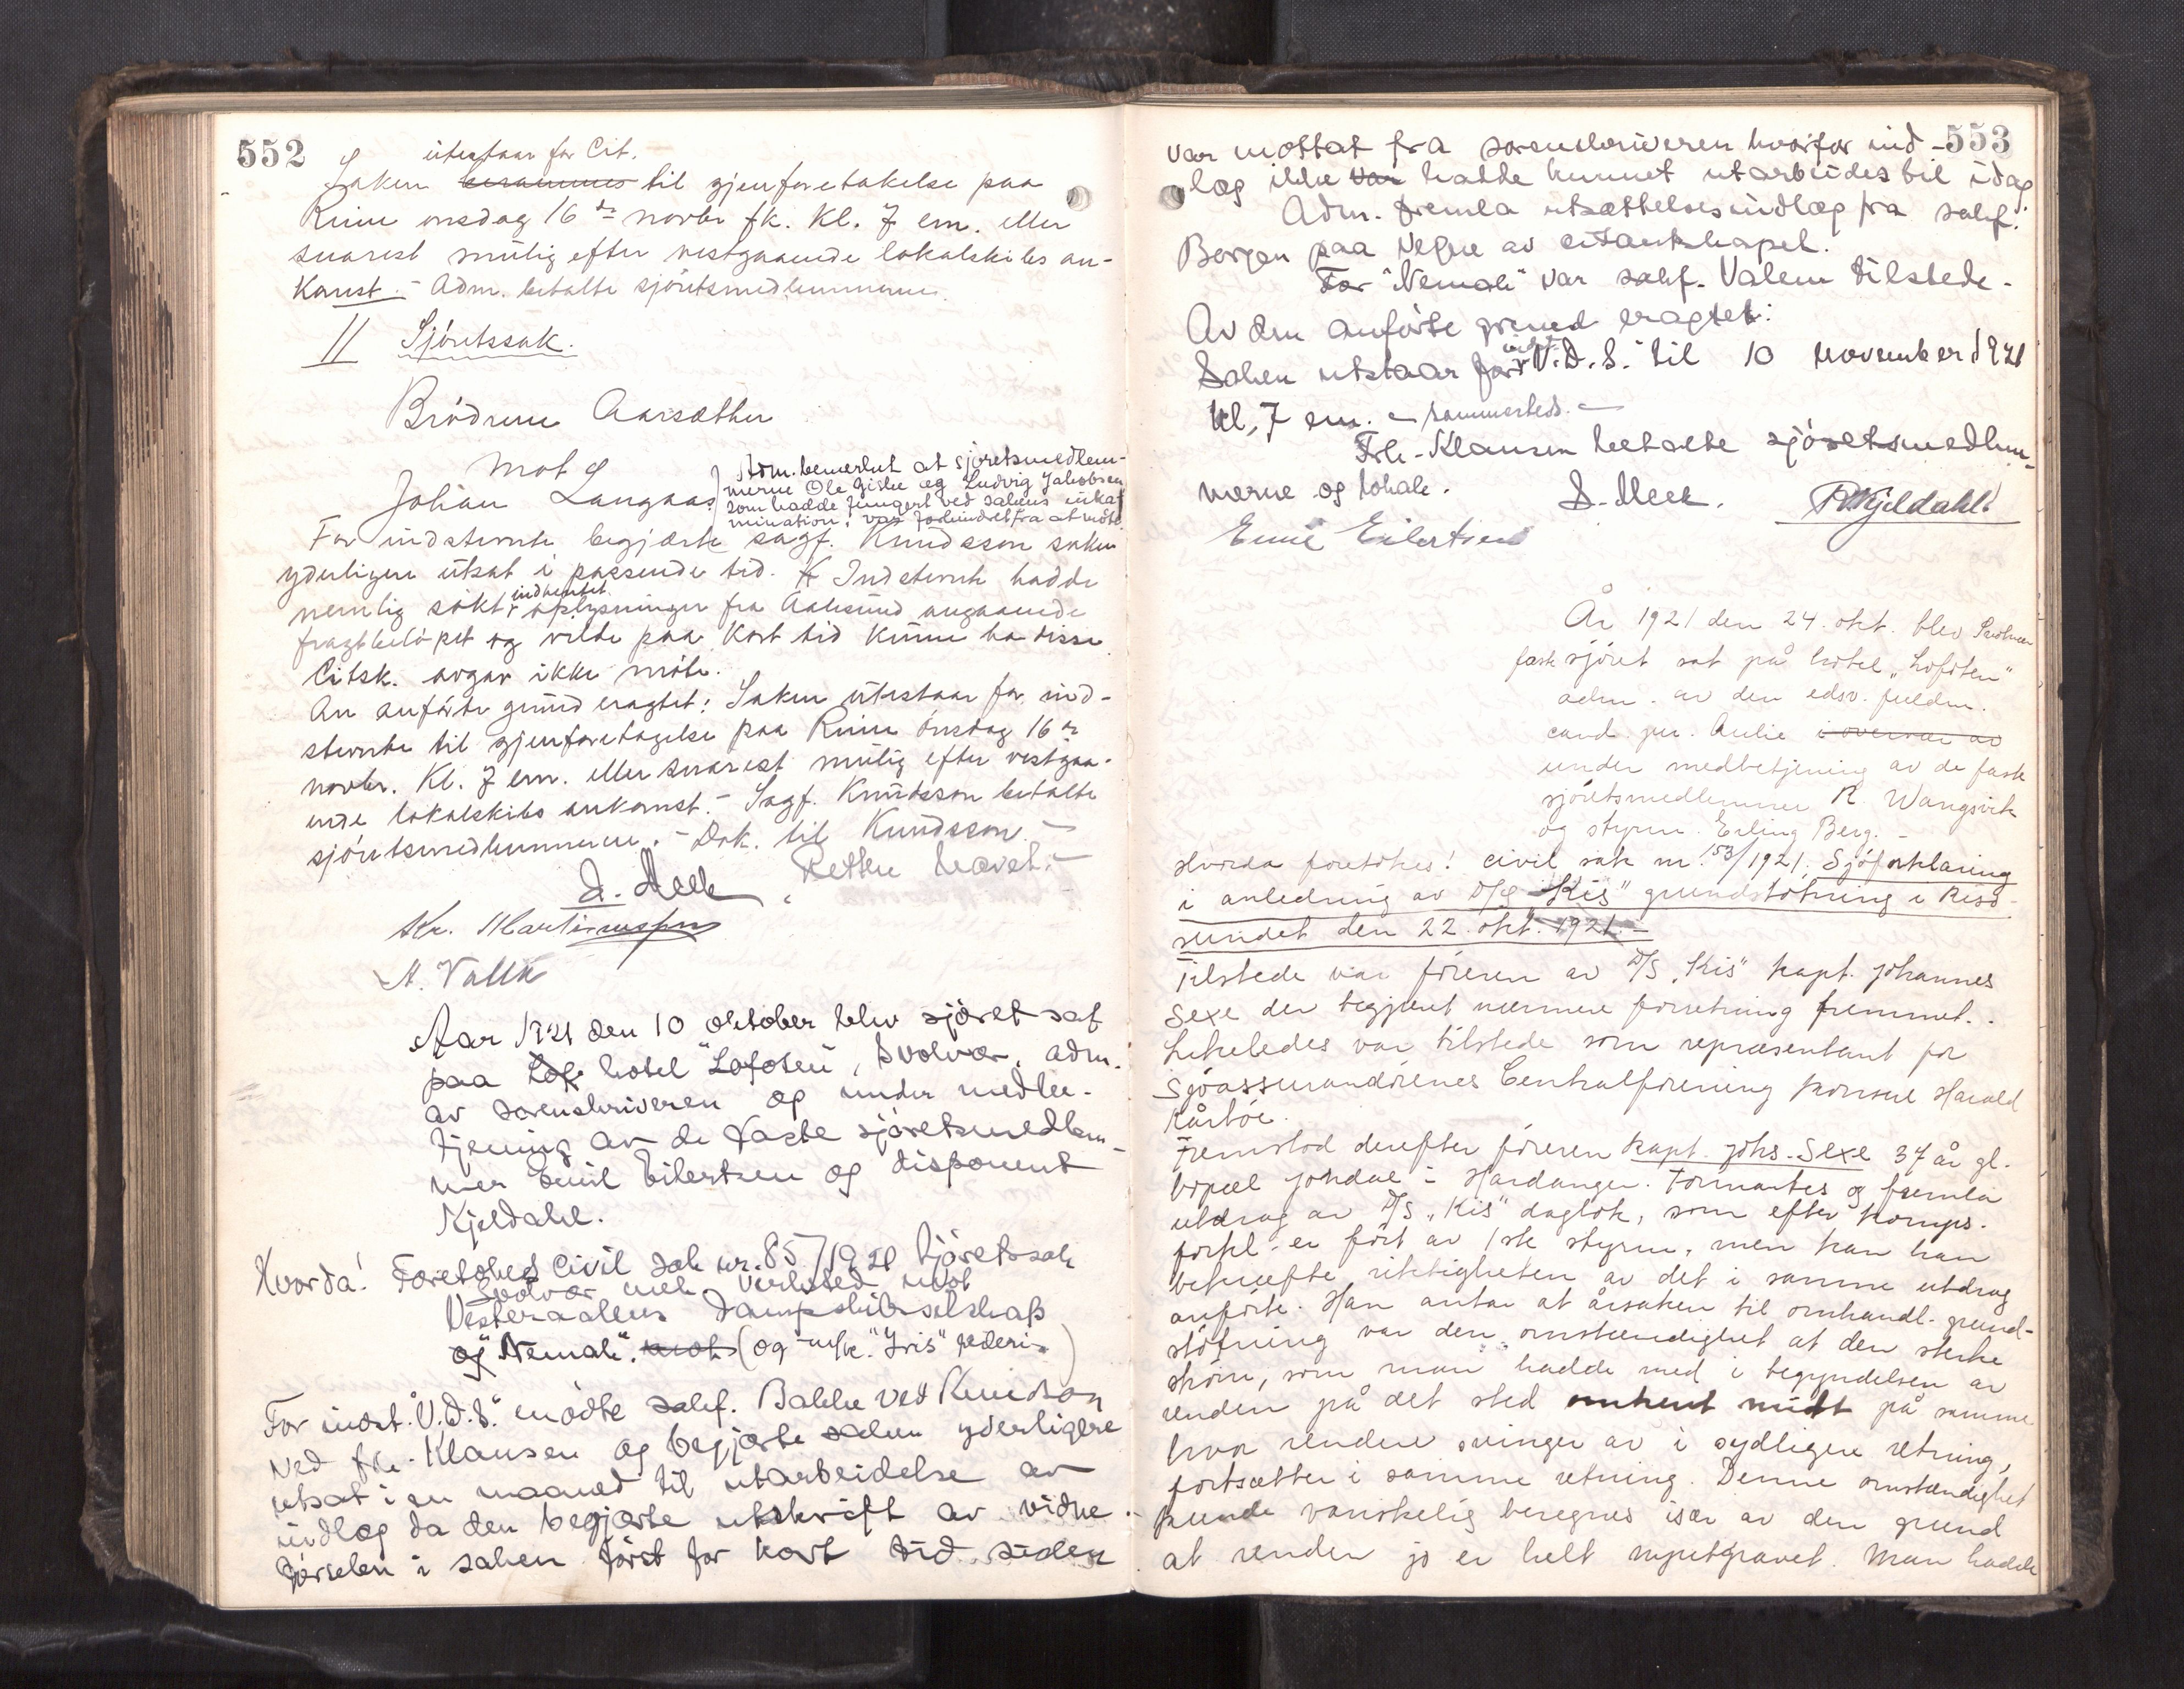 552
utestaar for Cit.
Saken berammes til gjenforetakelse paa
Rinø onsdag 16de novbr fk. Kl. 7 em. eller
snarest mulig efter vestgaaende lokalskibs an-
komst. - Adm. betalte sjöretsmedlemmerne.
11 Sjöretssak.
Brödrene Aarsæther
mot
Johan Langaas
Adm. bemerket at sjöretsmedlem-
merne Ole Giske og Ludvig Jakobsen
som hadde fungert ved sakens
var forhindret fra at möte.
For indstevnte begjærte sagf. Knudsson saken
yderligere utsat i passende tid. Indstevnte hadde
nemlig sökt indhentet oplysninger fra Aalesund angaaende
fragtbelöpet og vilde paa kort tid kunne ha disse.
Citsk. avgav ikke möte.
Av anförte grund eragtet: Saken utestaar for ind-
stevnte til gjenforetagelse paa Rinø onsdag 16de
novbr. Kl. 7 em. eller snarest mulig efter vestgaa-
ende lokalskibs ankomst. - Sagf. Knudsson betalte
sjöretsmedlemmerne. - Dok. til Knudsson. -
Retten hævet. -
D. Meek
Kr. Martinussen
A. Valle
Aar 1921 den 10 oktober blev sjöret sat
paa hotel "Lofoten", Svolvær, adm.
av sorenskriveren og under medbe-
tjening av de faste sjöretsmedlem-
mer Emil Eilertsen og disponent
Kjeldahl.
Hvorda! Foretokes Civil sak nr. 85/1921 Sjöretssak
Svolvær mek. verksted mot
Vesteraalens Dampskibsselskap
og "Nemak". mot (og m/k. "Iris" rederi.)
For indst. "V.D.S." mödte sakf. Bakke ved Knudson
ved frk. Klausen og begjærte saken yderligere
utsat i en maaned til utarbeidelse av
indlæg da den begjærte utskrift av vidne-
förselen i saken först for kort tid siden
553
var mottat fra sorenskriveren hvorfor ind-
læg ikke var hadde kunnet utarbeides til idag.
Adm. fremla utsættelsesindlæg fra sakf.
Borgen paa vegne av citantskapet.
For "Nemak" var sakf. Valem tilstede.
Av den anförte grund eragtet:
Saken utstaar for indst. "V.D.S." til 10 november 1921
kl. 7 em. - sammesteds. -
Frk. Klausen betalte sjöretsmedlem-
merne og lokale.
D. Meek. R Kjeldahl
Emil Eilertsen
År 1921 den 24. okt. blev Svolvær
faste sjöret sat på hotel "Lofoten"
adm. av den edsv. fuldm.
cand. jur. Aulie i overvær av
under medbetjening av de faste
sjöretsmedlemmer R. Wangsvik
og styrm. Erling Berg. -
Hvorda foretokes! civil sak nr. 53/1921. Sjöforklaring
i anledning av D/S "Kis" grundstötning i Risö-
sundet den 22. okt. 1921. -
Tilstede var föreren av D/S "Kis" kapt. Johannes
Sexe der begjæret nærmere forretning fremmet.
Likeledes var tilstede som repræsentant for
Sjöassurandörenes Centralforening konsul Harald
Kårböe.
Fremstod derefter föreren kapt. Johs. Sexe 37 år gl.
bopæl Jondal i Hardanger. Formantes og fremla
utdrag av D/S "Kis" dagbok, som efter komps.
forkl. er fört av 1ste styrm., men kan han
bekræfte riktigheten av det i samme utdrag
anförte. Han antar at årsaken til omhandl. grund-
stötning var den omstændighet at den sterke
ström, som man hadde med i begyndelsen av
renden på det sted omtrent midt på samme
hvor renden svinger av i sydligere retning,
fortsætter i samme retning. Denne omstændighet
kunde vanskelig beregnes især av den grund
at renden jo er helt nyutgravet. Man hadde